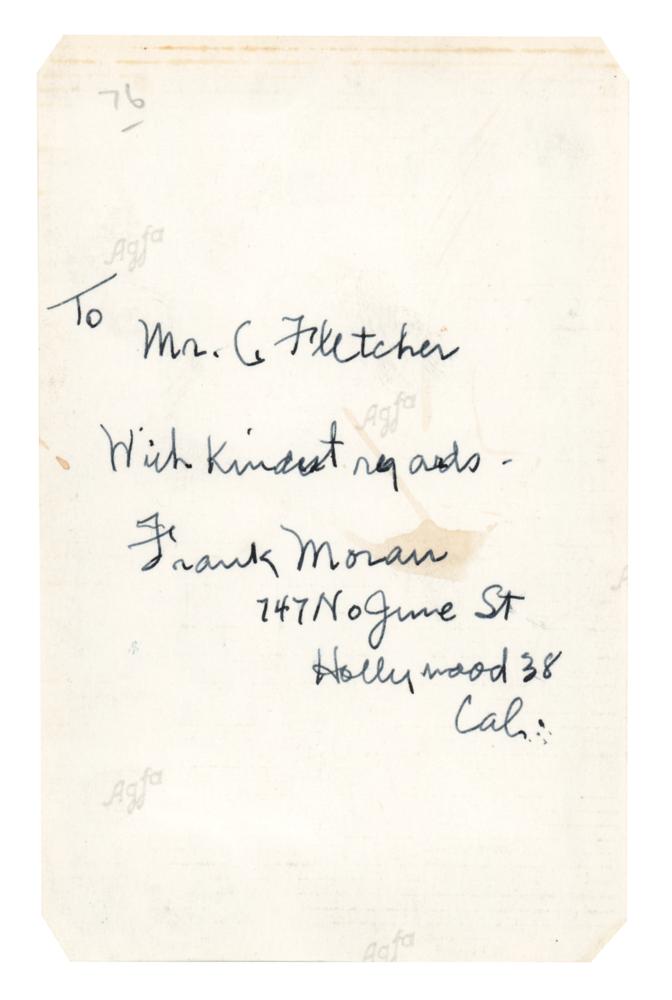 76
Agfa
To
Mr. C. Fletcher
Agfa
With Kindest regards -
Frank Moran
747 No June St
Hollywood 38
Cal.
Agfa
Agfa